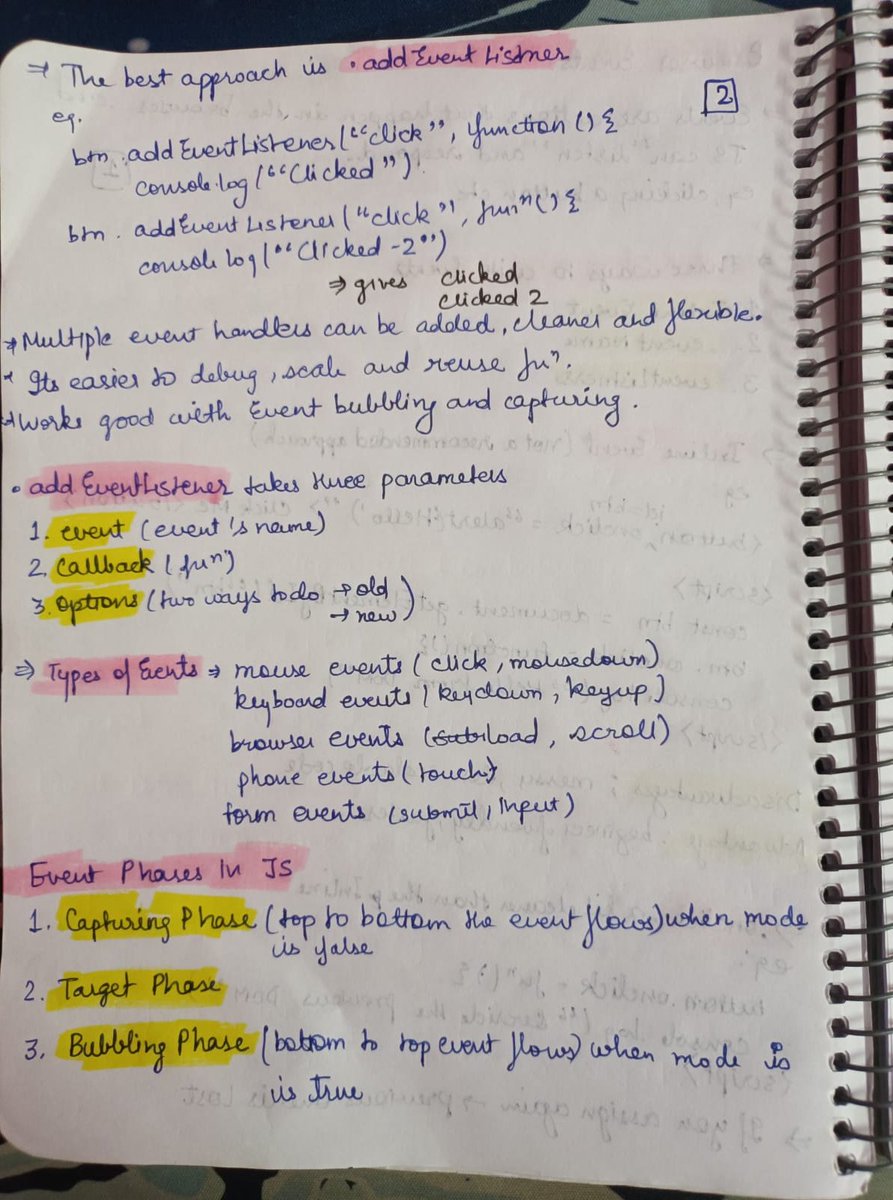 ⇒ The best approach is .addEventListner
2
eg.
btn.addEventListener(“click”, function () {
console.log(“Clicked”).
btn.addEventListener(“click”, funⁿ() {
console log(“Clicked -2”)
⇒ gives clicked
clicked 2
→ Multiple event handlers can be added, cleaner and flexible.
* Its easier to debug, scale and reuse funⁿ.
→ Works good with Event bubbling and capturing.
• addEventListener takes three parameters
1. event (event's name)
2. Callback (funⁿ)
3. Options (two ways to do → old
→ new)
⇒ Types of Events → mouse events (click, mousedown)
keyboard events (keydown, keyup)
browser events (load, scroll)
phone events (touch)
form events (submit, input)
Event Phases In JS
1. Capturing Phase (top to bottom the event flows) when mode
is false
2. Target Phase
3. Bubbling Phase (bottom to top event flows) when mode is
is true